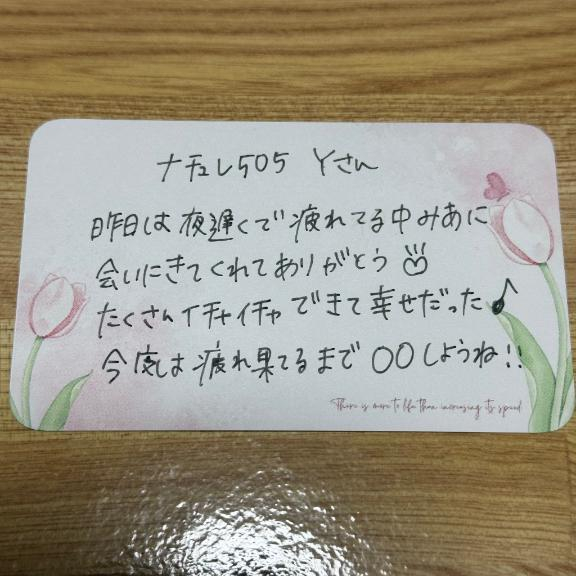 ナチュレ505 Yさん
昨日は夜遅くで疲れてる中みあに
会いにきてくれてありがとう
たくさんイチャイチャできて幸せだった♪
今度は疲れ果てるまで〇〇しようね!!
There is more to life than increasing its speed